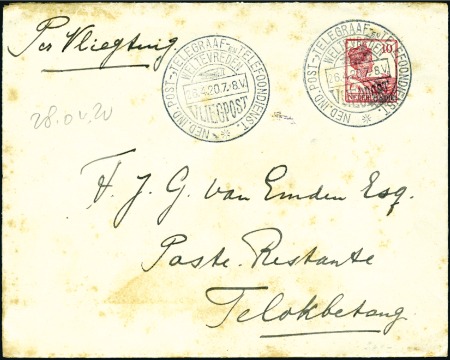 Per Vliegtuig.
NED.IND.POST-TELEGRAAF-EN TELEFOONDIENST.
WELTEVREDEN
28.4.20.7.-8.V.
VLIEGPOST
NED.IND.POST-TELEGRAAF-EN TELEFOONDIENST.
WELTEVREDEN
28.4.20.7.-8.V.
VLIEGPOST
10
28.04.20
H. J. G. van Emden Esq.
Poste Restante
Telokbetang